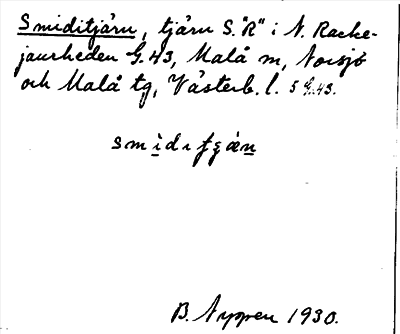 Smiditjärn, tjärn S."R" i N. Racke-
jaurheden G.43, Malå m, Norsjö
och Malå tg, Västerb. l. 5 G.43.
B. Nyppen 1930.